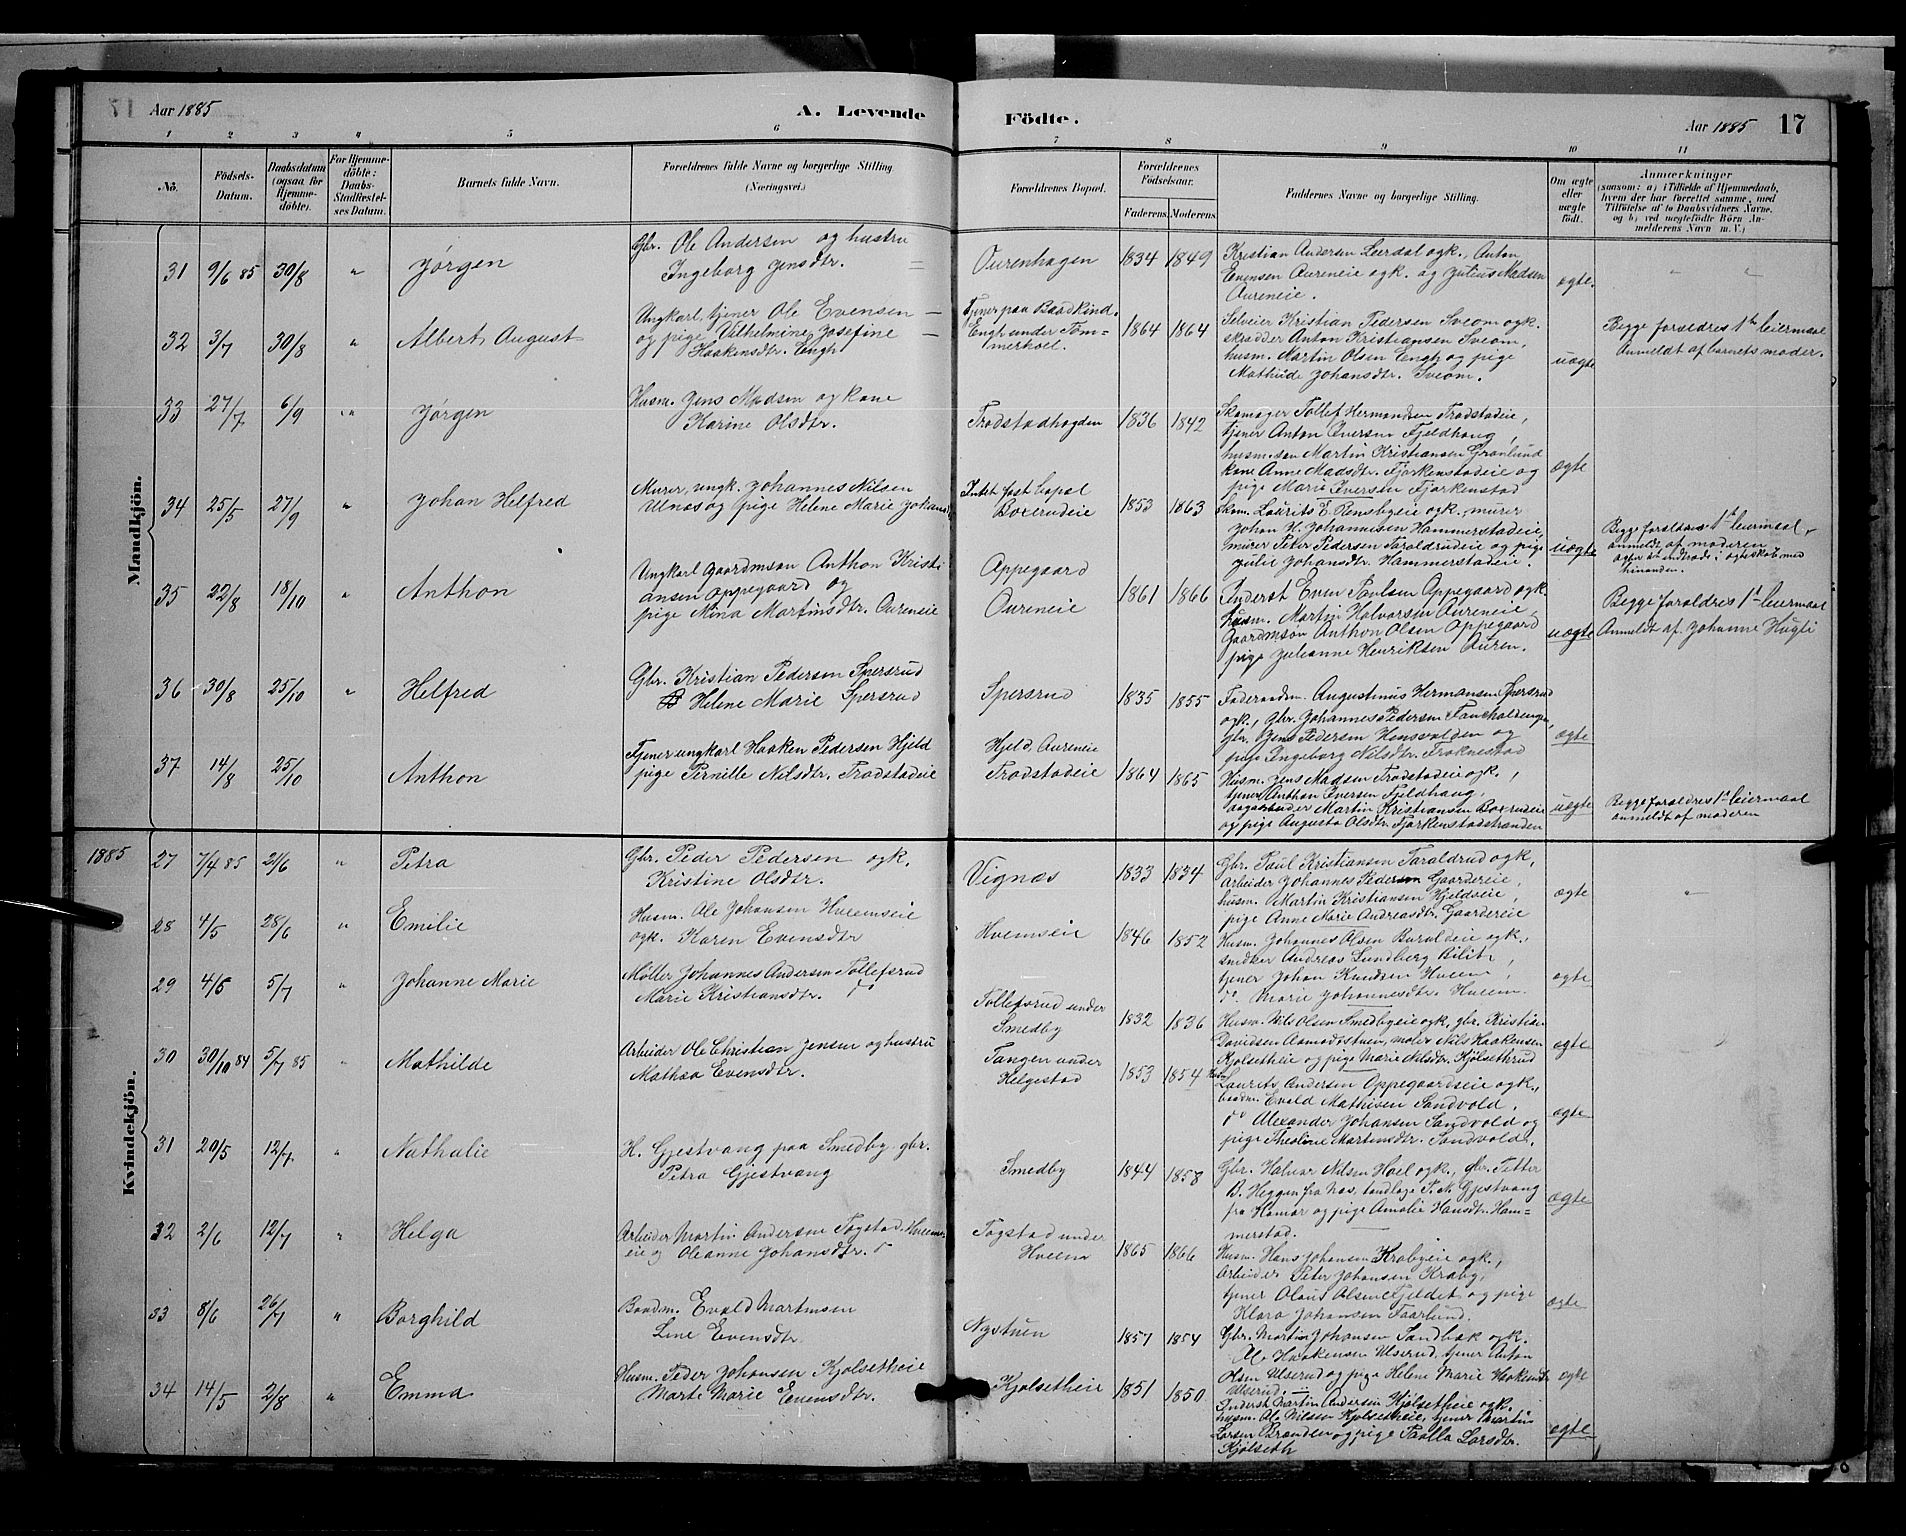 Aar 1885
A. Levende
Födte.
Aar 1885
17
1 2 3 4 5 6 7 8 9 10 11
No.
Födsels-Datum.
Daabsdatum (ogsaa for Hjemme-döbte).
For Hjemme-döbte: Daabs-Stadfæstel-ses Datum.
Barnets fulde Navn.
Forældrenes fulde Navne og borgerlige Stilling (Næringsvei.)
Forældrenes Bopæl.
Forældrenes Födselsaar.
Faderens. Moderens.
Faddernes Navne og borgerlige Stilling.
Om ægte eller uægte født.
Anmærkninger
(saasom: a) i Tilfælde af Hjemmedaab,
hvem der har forrettet samme, med
Tilføielse af to Daabsvidners Navne.
og b) ved uægtefödte Börn An-
melderens Navn m. V.)
Mandkjön.
31 9/6 85 30/8 " Jørgen
Gbr. Ole Andersen og hustru
Ingeborg Jensdtr.
Ourenhagen 1834 1849
Kristian Andersen Leerdal ogk., Anton
Evensen Aureneie ogk. og Julius Madsen
Aureneie.
ægte. " "
32 3/7 30/8 " Albert August
Ungkarl, tjener Ole Evensen
og pige Vilhelmine Josefine
Haakensdtr. Engh
Tjener paa Baadkind.
Engh under Tom-
merhoel.
1864 1864
Selveier Kristian Pedersen Sveom ogk.
skrædder Anton Kristiansen Sveom,
husm. Martin Olsen Engh og pige
Mathilde Johansdtr. Sveom.
uægte
Begge forældres 1ste leiermaal
Anmeldt af barnets moder.
33 27/7 6/9 " Jørgen
Husm. Jens Madsen og kone
Karine Olsdtr.
Trodstadhogden 1836 1842
Skomager Tollef Hermandsen Trodstadeie,
tjener Anton Iversen Fjeldhaug,
husm.søn Martin Kristiansen Grønlund
kone Anne Madsdtr. Fjorkenstadeie og
pige Marie Iversen Fjorkenstad
ægte
34 25/5 27/9 " Johan Helfred
Murer, ungk. Johannes Nilsen
Ulnæs og pige Helene Marie Johansd.
Intet fast bopæl
Boxerudeie
1853 1863
Skom. Laurits E. Rensbyeie ogk., murer
Johan H. Johannesen Hammerstadeie,
murer Peter Pedersen Taraldrudeie og pige
Julie Johansdtr. Hammerstadeie.
uægte
Begge forældres 1st leiermaal
anmeldt af moderen
agter at indtræde i ægteskab med
hinanden.
35 22/8 18/10 " Anthon
Ungkarl Gaardmsøn Anthon Kristi-
ansen Oppegaard og
pige Nina Martinsdtr. Aureneie
Oppegaard
Aureneie
1861 1866
Inderst Even Paulsen Oppegaard ogk.
husm. Martin Halvorsen Aureneie,
Gaardmsøn Anthon Olsen Oppegaard
pige Juleanne Henriksen Auren.
uægte
Begge forældres 1st leiermaal
Anmeldt af Johanne Hugli
36 30/8 25/10 " Helfred
Gbr. Kristian Pedersen Spersrud
Helene Marie Spersrud
Spersrud 1835 1855
Føderaadm. Augustinus Hermansen Spersrud
ogk., Gbr. Johannes Pedersen
Gbr. Jens Pedersen Hensvolden og
pige Ingeborg Nilsdtr.
ægte
37 14/8 25/10 Anthon
Tjener ungkarl Haaken Pedersen Hjeld
pige Pernille Nilsdtr. Trodstadeie
Hjeld, Aureneie
Trodstadeie
1864 1865
Husm. Jens Madsen Trodstadeie ogk.,
tjener Anthon Iversen Fjeldhaug,
Martin Kristiansen Boxerudeie
og pige Augusta Olsdtr. Fjorkenstadstranden
uægte
Begge forældres 1st leiermaal
anmeldt af moderen
1885
Kvindekjön.
27 7/4 85 21/6 " Petra
Gbr. Peder Pedersen ogk.
Kristine Olsdtr.
Vignæs 1833 1834
Gbr. Paul Kristiansen Taraldrud ogk,
Arbeider Johannes Pedersen Gaardereie,
husm. Martin Kristiansen Hjeldveie,
pige Anne Marie Andreasdtr. Gaardereie
ægte "
28 4/5 28/6 " Emilie
Husm. Ole Johansen Hveemseie
ogk. Karen Evensdtr
Hvemseie 1846 1852
Husm. Johannes Olsen Buruldeie ogk.,
snedker Andreas Lundberg Bilit,
tjener Johan Knudsen Hveem,
do. Marie Johannesdtr. Hveem.
ægte
29 4/5 5/7 " Johanne Marie
Møller Johannes Andersen Tollefsrud
Marie Kristiansdtr. do
Tollefsrud under
Smedby
1832 1836
Husm. Nils Olsen Smedbyeie ogk, gbr. Kristian
Davidsen Asmodostuen, maler Nils Haakensen
Kjolsetheie og pige Marie Nilsdtr. Kjølsethrud
ægte
30 30/10 84 5/7 85 " Mathilde
Arbeider Ole Christian Jensen og hustru
Mathea Evensdtr.
Tangen under
Helgestad
1853 1854
Laurits Andersen Oppegaardseie ogk.,
baadm. Evald Mathisen Sandvold,
do Alexander Johansen Sandvold og
pige Theoline Martinsdtr. Sandvold.
ægte
31 20/5 12/7 " Nathalie
H. Gjestvang paa Smedby gbr.
Petra Gjestvang
Smedby 1844 1858
Gbr. Halvor Nilsen Hoel ogk., gbr. Petter
B. Heggen fra Næs, tandlæge P. N. Gjestvang
fra Hamar og pige Amalie Hansdtr. Ham-
merstad.
ægte
32 2/6 12/7 " Helga
Arbeider Martin Andersen Togstad, Hveems-
eie og Oleanne Johansdtr. do
Togstad under
Hveem
1865 1866
Husm. Hans Johansen Krabyeie ogk.,
Arbeider Peter Johansen Kraby,
tjener Olaus Olsen Fjeldet og pige
Klara Johansen Faarlund.
ægte
33 8/6 26/7 " Borghild
Baadm. Evald Martinsen
Line Evensdtr.
Nystuen 1857 1854
Gbr. Martin Johansen Sandbæk ogk.
Ole Haakensen Ulserud, tjener Anton
Olsen Ulserud og pige Helene Marie Haakensdtr
Ulserud.
ægte
34 14/5 2/8 " Emma
Husm. Peder Johansen Kjolsetheie
Marte Marie Evensdtr.
Kjolsetheie 1851 1850
Inderst Martin Andersen Kjolsetheie ogk.
husm. Ole Nilsen Kjolsetheie, tjener Martin
Larsen Brænden og pige Paolla Larsdtr.
Kjølseth
ægte